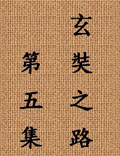 玄奘之路
第五集